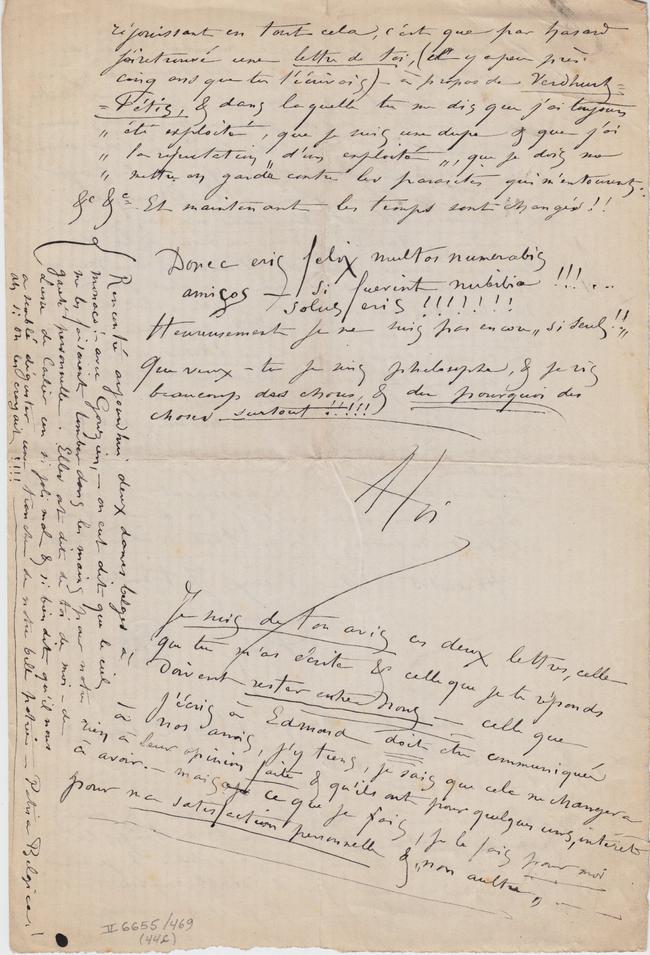 réjouissant en tout cela, c'est que par hasard
j'ai retrouvé une lettre de toi, (il y a peu près
cinq ans que tu l'écrivais) – à propos de Verdhurt=
=Pétis, & dans laquelle tu me dis que j'ai toujours
„ été exploité, que je suis une dupe & que j'ai
„ la réputation „d'un exploité„, que je dois me
„ mettre en garde contre les parasites qui m'entourent.
&c &c. Et maintenant les temps sont changés!!
Donec eris felix multos numerabis
amigos – si fuerint nubilia !!!...
solus eris !!!!!!!
Heureusement je ne suis pas encore „si seul!!„
Que veux-tu je suis philosophe, & je ris
beaucoup des choses, & du pourquoi des
choses surtout !!!!!
Je suis de ton avis ces deux lettres, celle
que tu m'as écrite & celle que je te réponds
doivent rester entre nous – celle que
j'écris à Edmond doit être communiquée
à nos amis, j'y tiens, je sais que cela ne changera
rien à leur opinion faite & qu'ils ont pour quelques uns, intérêt
à avoir. – mais ce que je fais, je le fais pour moi
pour ma satisfaction personnelle & „non aultre„ –
Rencontré aujourd'hui deux dames belges à
Monaco – avec Gouzien, – on eut dit que le ciel
me les faisaient tomber dans les mains pour notre
gaité personnelle. Elles ont dit de toi de moi – de
Luise de Calias un si joli mal & si bien dit qu'il nous
a semblé déguster une tranche de notre belle patrie – Patria Belgica!!
ah si on en croyait!!!!
II 6655/469
(44c)